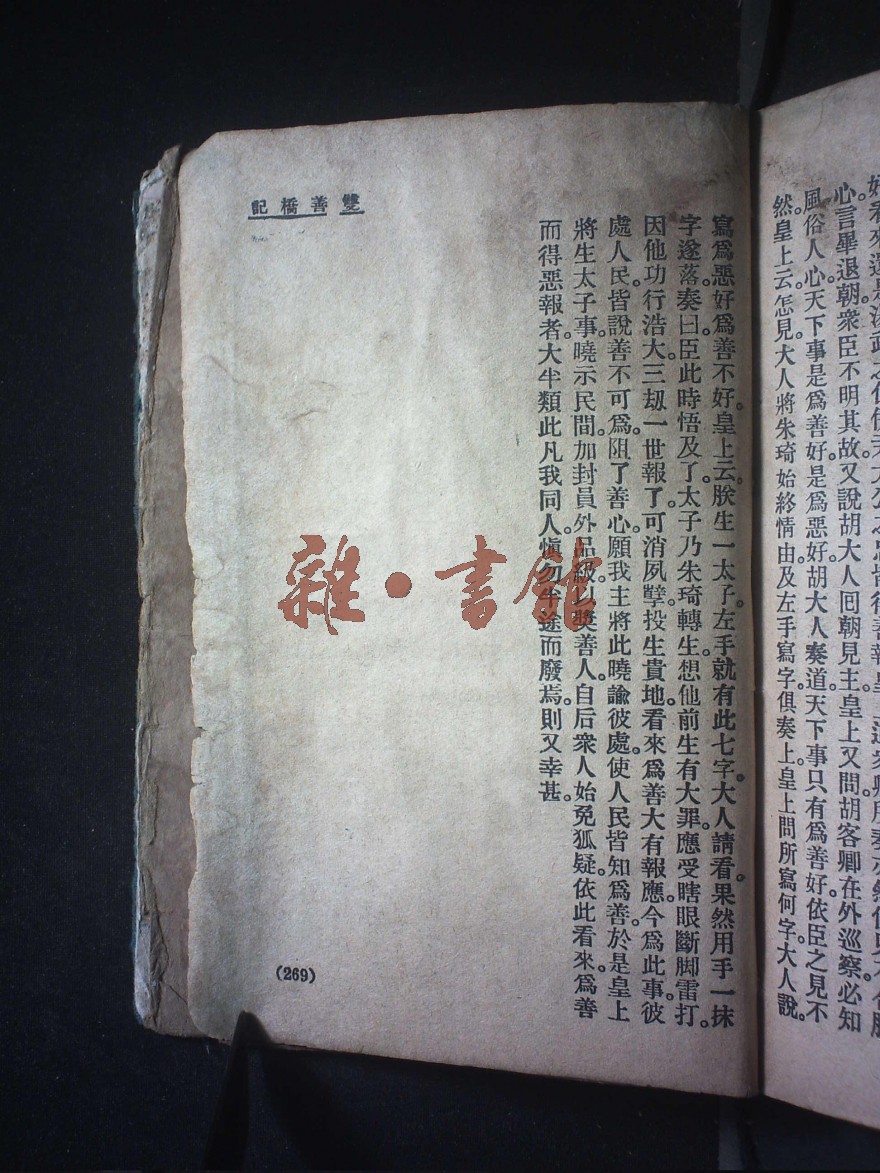 好看來還是
心言畢退朝衆臣不明其故。又說胡大人囘朝見主。皇上又問胡客卿在外巡察必知
風俗人心。天下事是爲善好。是爲惡好。胡大人奏道。天下事只有爲善好。依臣之見不
然。皇上云。怎見。大人將朱琦始終情由。及左手寫字俱奏上。皇上問所寫何字。大人說。
寫爲惡好。爲善不好。皇上云。朕生一太子。左手就有此七字。大人請看。果然用手一抹
字遂落。奏曰。臣此時悟及了。太子乃朱琦轉生。想他前生有大罪。應受瞎眼斷脚雷打。
因他功行浩大。三刼一世報了。可消夙孼。投生貴地。看來爲善大有報應。今爲此事。彼
處人民。皆說善不可爲。阻了善心。願我主將此曉諭彼處。使人民皆知爲善。於是皇上
將生太子事。曉示民間。加封員外品級。以獎善人。自后衆人始免狐疑。依此看來。爲善
而得惡報者。大半類此。凡我同人。愼勿半途而廢焉。則又幸甚。
雙善橋記
(269)
雜·書館